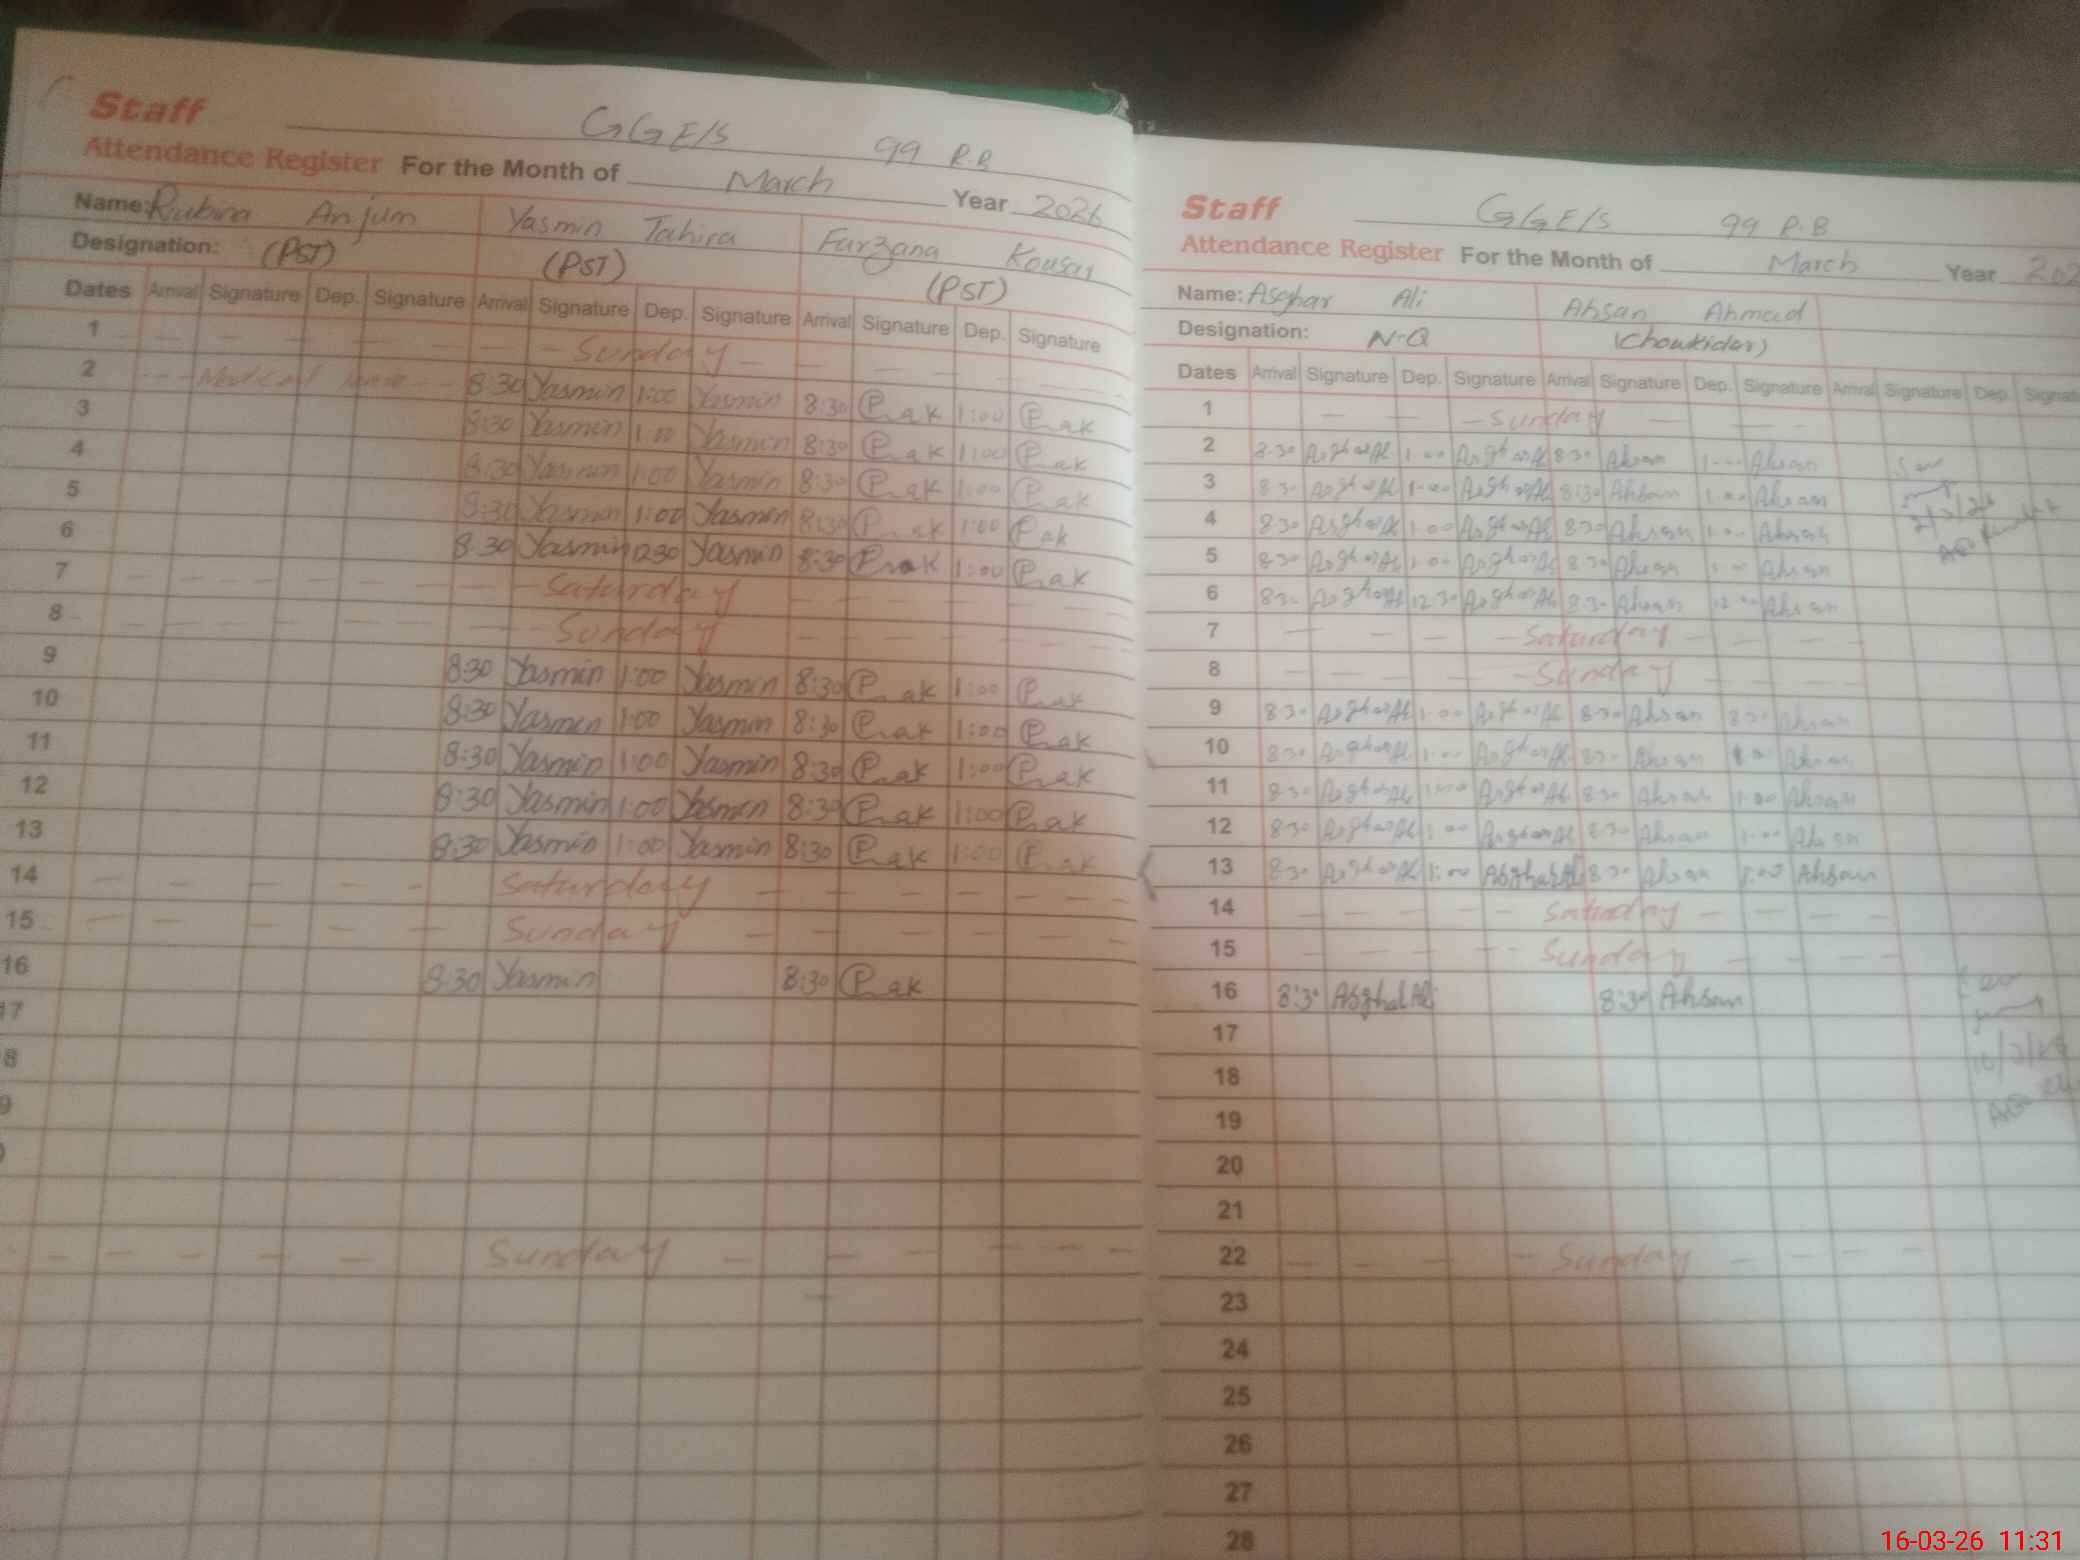 Staff GGE/S 99 R.B
Attendance Register For the Month of March Year 2026
Name: Rubina Anjum Yasmin Tahira Farzana Kousar
Designation: (PST) (PST) (PST)
Dates Arrival Signature Dep. Signature Arrival Signature Dep. Signature Arrival Signature Dep. Signature
1 Sunday
2 Medical 8:30 Yasmin 1:00 Yasmin 8:30 1:00
3 8:30 Yasmin 1:00 Yasmin 8:30 1:00
4 8:30 Yasmin 1:00 Yasmin 8:30 1:00
5 8:30 Yasmin 1:00 Yasmin 8:30 1:00
6 8:30 Yasmin 1230 Yasmin 8:30 1:00
7 Saturday
8 Sunday
9 8:30 Yasmin 1:00 Yasmin 8:30 1:00
10 8:30 Yasmin 1:00 Yasmin 8:30 1:00
11 8:30 Yasmin 1:00 Yasmin 8:30 1:00
12 8:30 Yasmin 1:00 Yasmin 8:30 1:00
13 8:30 Yasmin 1:00 Yasmin 8:30 1:00
14 Saturday
15 Sunday
16 8:30 Yasmin 8:30
17
8
9
Sunday
Staff GGE/S 99 R.B
Attendance Register For the Month of March Year 202
Name: Asghar Ali Ahsan Ahmad
Designation: N-Q (Chowkidar)
Dates Arrival Signature Dep. Signature Arrival Signature Dep. Signature Arrival Signature Dep. Signat
1 Sunday
2 8:30 Asghar Ali 1:00 Asghar Ali 8:30 Ahsan 1:00 Ahsan
3 8:30 Asghar Ali 1:00 Asghar Ali 8:30 Ahsan 1:00 Ahsan
4 8:30 Asghar Ali 1:00 Asghar Ali 8:30 Ahsan 1:00 Ahsan
5 8:30 Asghar Ali 1:00 Asghar Ali 8:30 Ahsan 1:00 Ahsan
6 8:30 Asghar Ali 12:30 Asghar Ali 8:30 Ahsan Ahsan
7 Saturday
8 Sunday
9 8:30 Asghar Ali 1:00 Asghar Ali 8:30 Ahsan 8:30 Ahsan
10 8:30 Asghar Ali 1:00 Asghar Ali 8:30 Ahsan Ahsan
11 8:30 Asghar Ali 1:00 Asghar Ali 8:30 Ahsan 1:00 Ahsan
12 8:30 Asghar Ali 1:00 Asghar Ali 8:30 Ahsan 1:00 Ahsan
13 8:30 Asghar Ali 1:00 Asghar Ali 8:30 Ahsan 1:00 Ahsan
14 Saturday
15 Sunday
16 8:30 Asghar Ali 8:30 Ahsan
17
18
19
20
21
22 Sunday
23
24
25
26
27
28
16-03-26 11:31